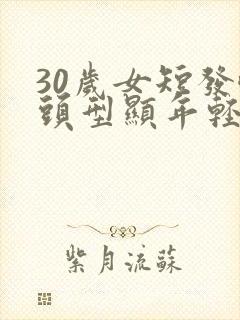 30歲女短發
頭型顯年輕
紫月流蘇